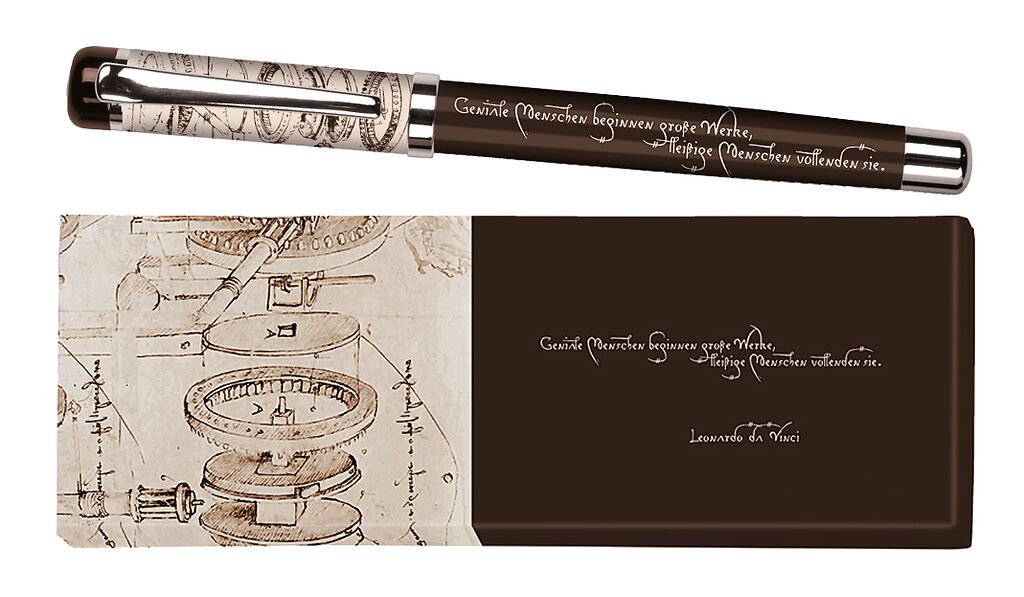 Geniale Menschen beginnen große Werke,
fleißige Menschen vollenden sie.
Geniale Menschen beginnen große Werke,
fleißige Menschen vollenden sie.
Leonardo da Vinci